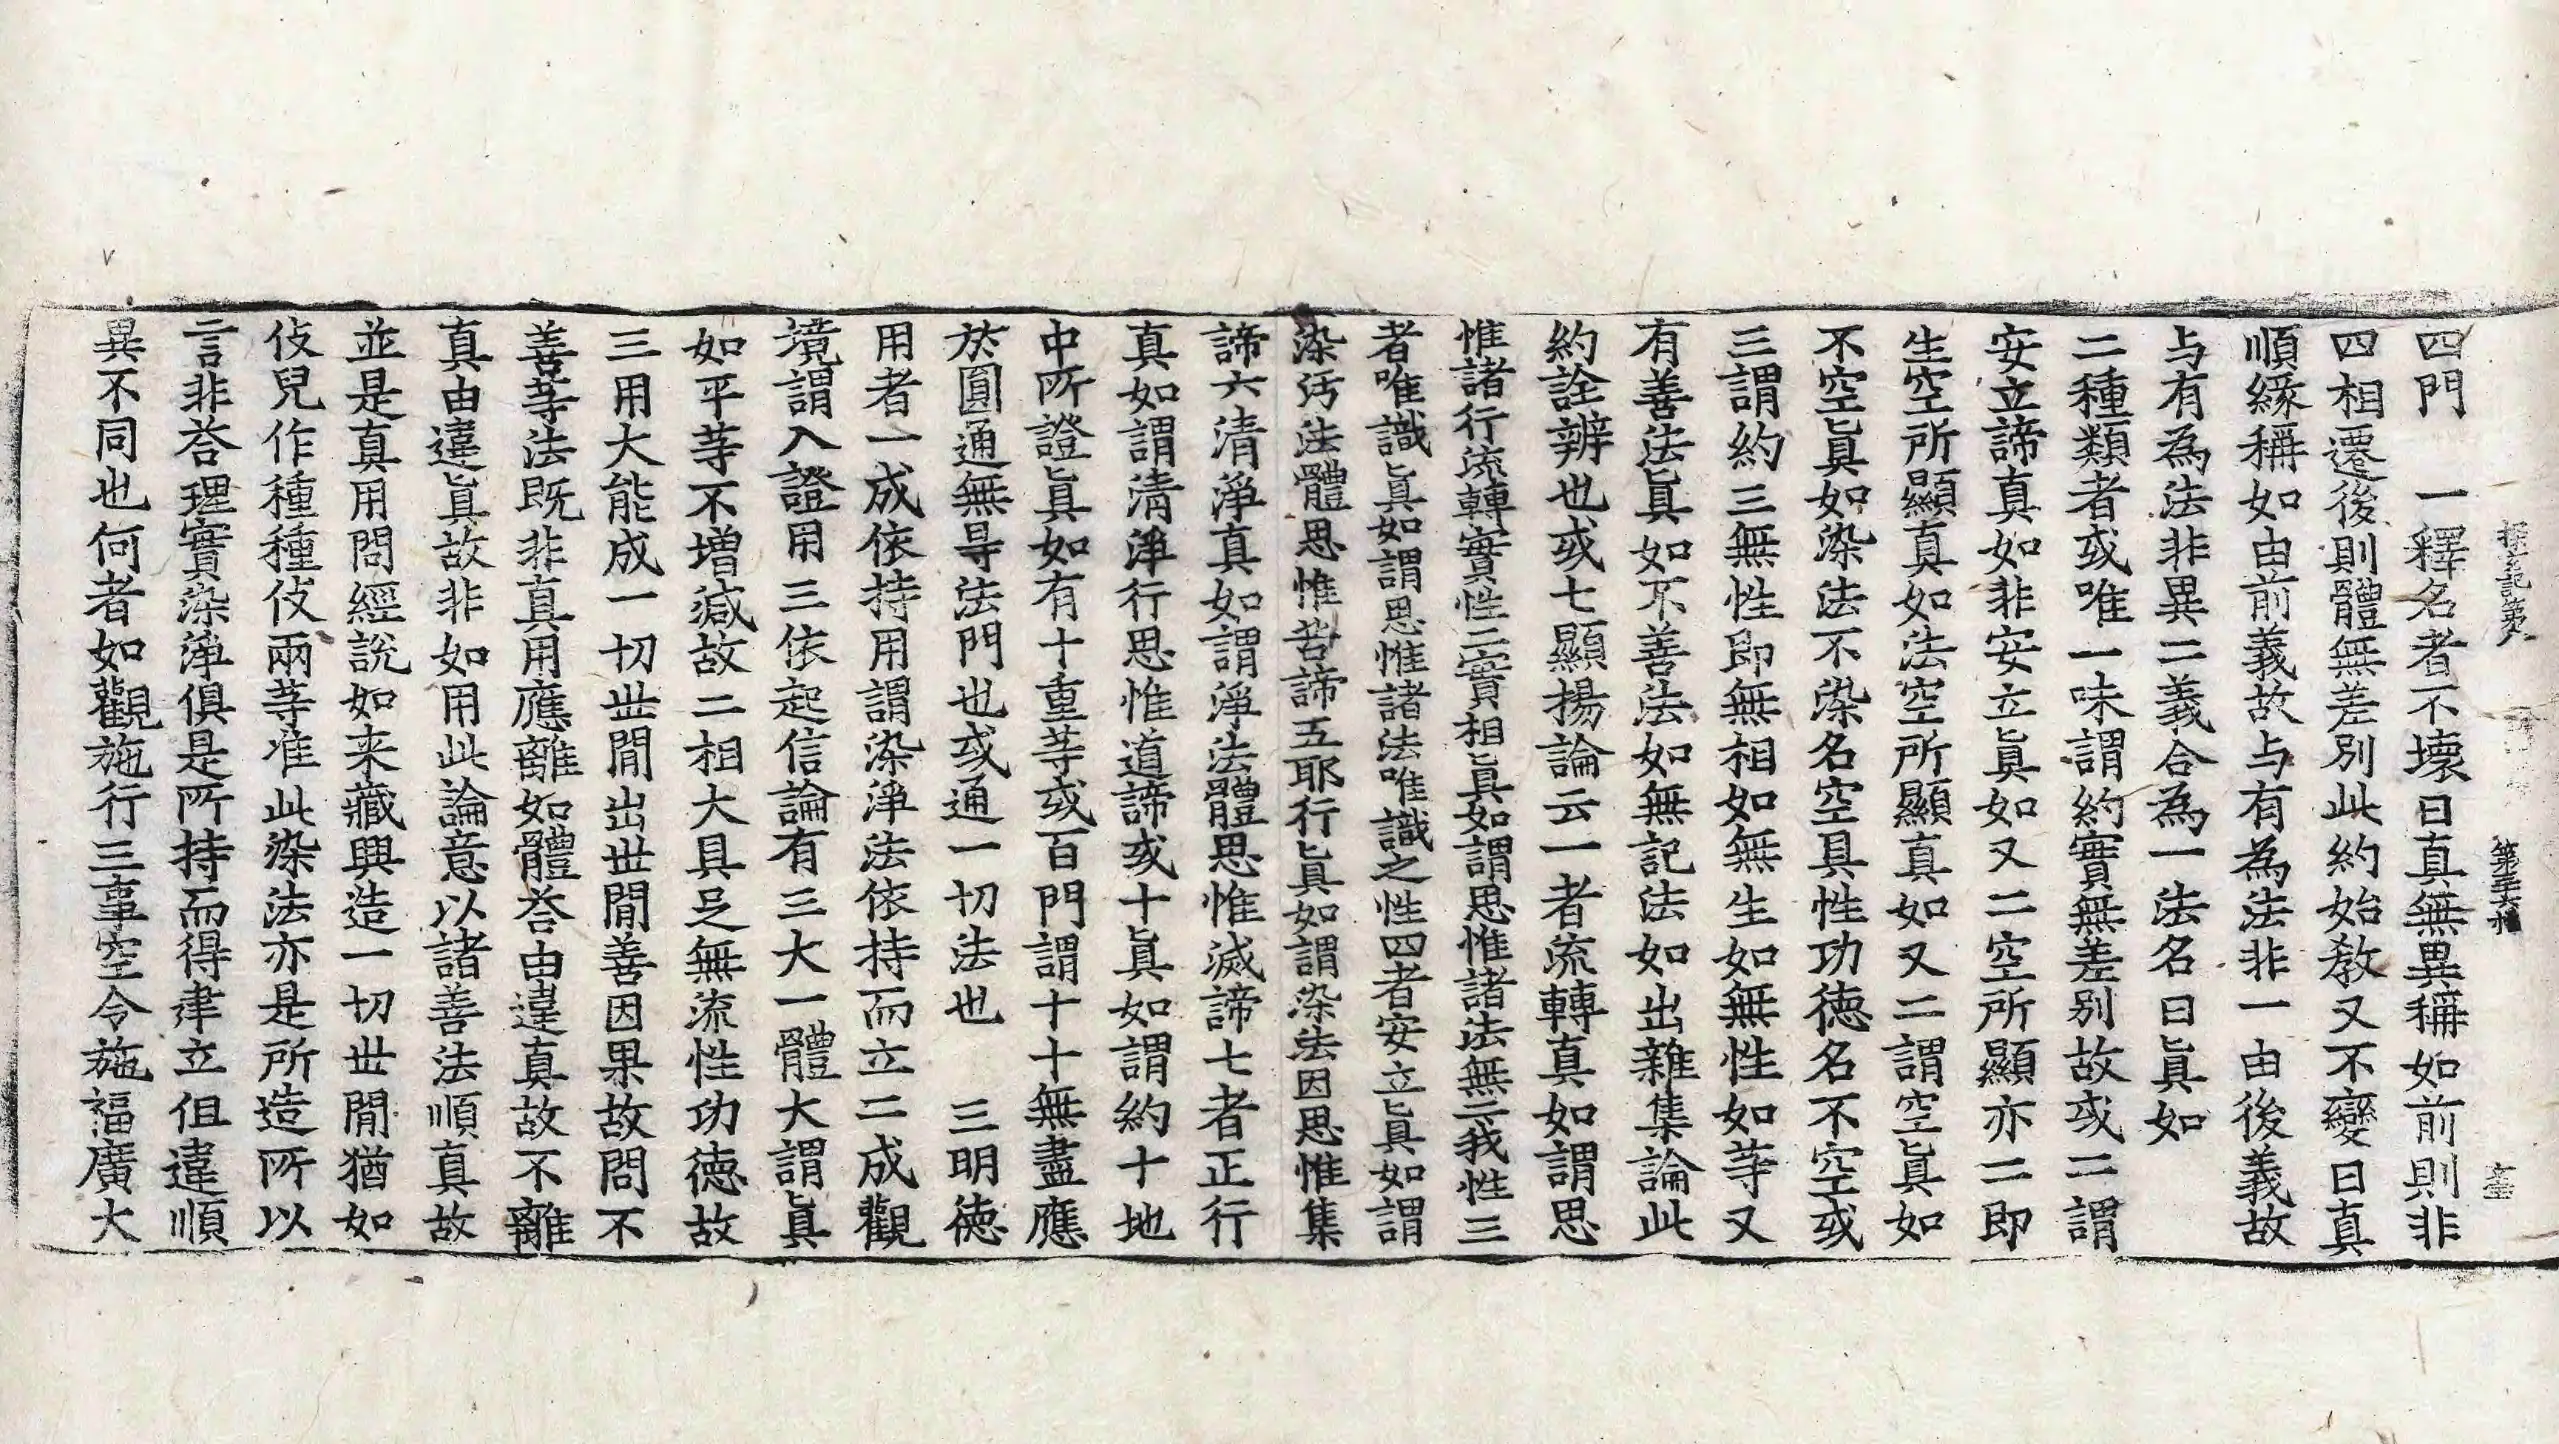 探玄記第八 第三十六幅 玄
四門 一釋名者不壞曰真無異稱如前則非
四相遷後則體無差別此約始教又不變曰真
順緣稱如由前義故与有為法非一由後義故
与有為法非異二義合為一法名曰真如
二種類者或唯一味謂約實無差別故或二謂
安立諦真如非安立真如又二空所顯亦二即
生空所顯真如法空所顯真如又二謂空真如
不空真如染法不染名空具性功德名不空或
三謂約三無性即無相如無生如無性如等又
有善法真如不善法如無記法如出雜集論此
約詮辨也或七顯揚論云一者流轉真如謂思
惟諸行流轉實性二實相真如謂思惟諸法無二我性三
者唯識真如謂思惟諸法唯識之性四者安立真如謂
染汚法體思惟苦諦五耶行真如謂染法因思惟集
諦六清淨真如謂淨法體思惟滅諦七者正行
真如謂清淨行思惟道諦或十真如謂約十地
中所證真如有十重等或百門謂十十無盡應
於圓通無㝵法門也或通一切法也 三明德
用者一成依持用謂染淨法依持而立二成觀
境謂入證用三依起信論有三大一體大謂真
如平等不增減故二相大具足無流性功德故
三用大能成一切世間出世間善因果故問不
善等法既非真用應離如體荅由違真故不離
真由違真故非如用此論意以諸善法順真故
並是真用問經說如来藏興造一切世間猶如
伎兒作種種伎兩等准此染法亦是所造所以
言非荅理實染淨俱是所持而得建立但違順
異不同也何者如觀施行三事空令施福廣大